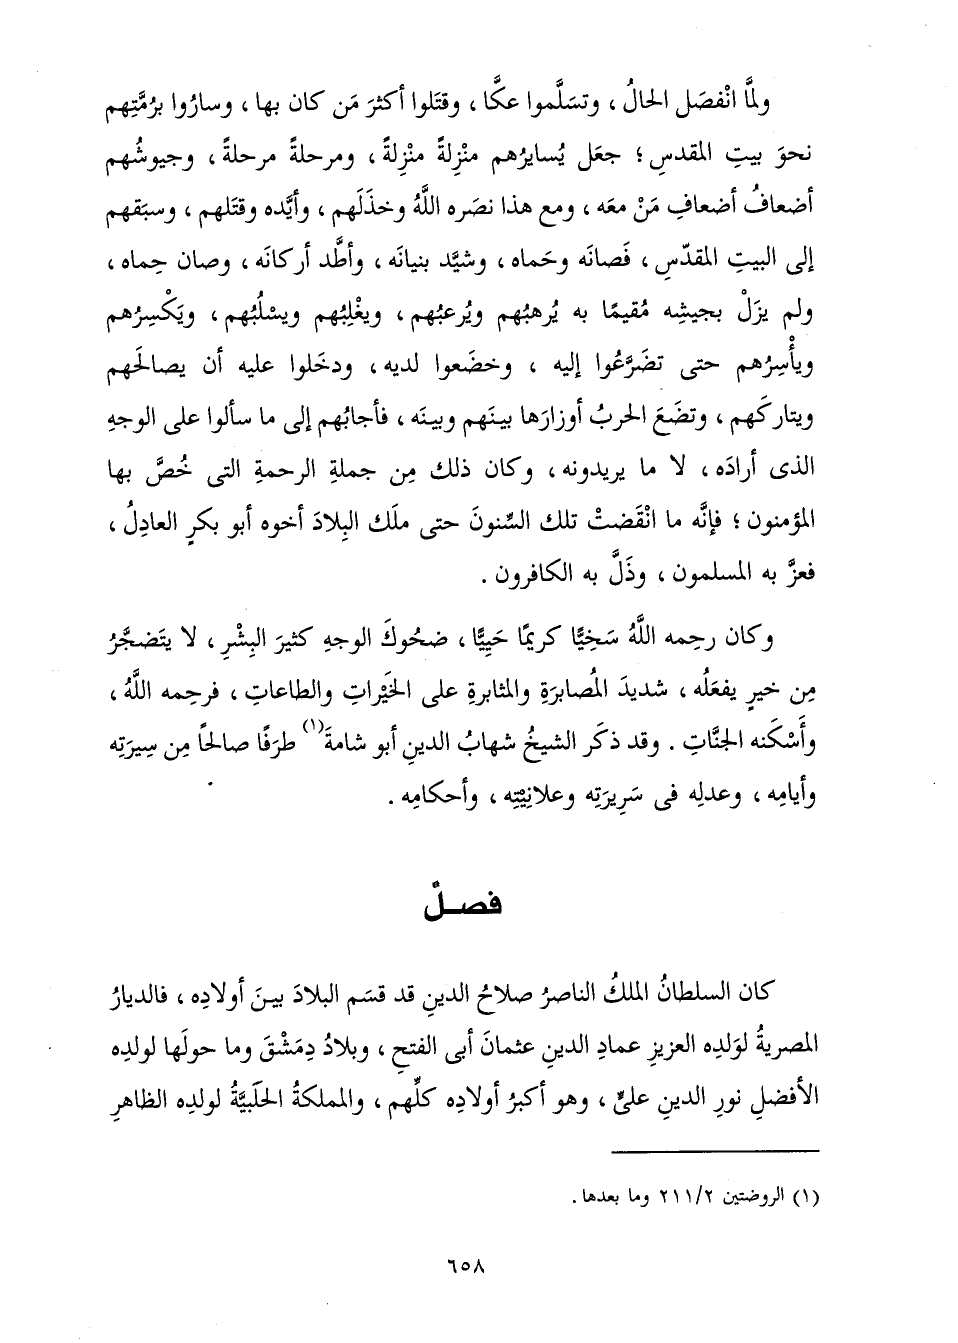 ولمَّا انْفصَل الحالُ ، وتسَلَّموا عكَّا ، وقتَلوا أكثرَ مَن كان بها ، وسارُوا برُمَّتِهم
نحوَ بيتِ المقدسِ ؛ جعَل يُسايرُهم منْزِلةً منْزِلةً ، ومرحلةً مرحلةً ، وجيوشُهم
أضعافُ أضعافِ مَنْ معَه ، ومع هذا نصَره اللَّهُ وخذَلَهم ، وأيَّده وقتَلهم ، وسبَقهم
إلى البيتِ المقدّسِ ، فَصانَه وحَماه ، وشيَّد بنيانَه ، وأطَّد أركانَه ، وصان حِماه ،
ولم يزَلْ بجيشِه مُقيمًا به يُرهبُهم ويُرعبُهم ، ويغْلِبُهم ويسْلُبُهم ، ويَكْسِرُهم
ويأْسِرُهم حتى تضَرَّعُوا إليه ، وخضَعوا لديه ، ودخَلوا عليه أن يصالحَهم
ويتاركَهم ، وتضَعَ الحربُ أوزارَها بينَهم وبينَه ، فأجابُهم إلى ما سألوا على الوجهِ
الذى أرادَه ، لا ما يريدونه ، وكان ذلك مِن جملةِ الرحمةِ التى خُصَّ بها
المؤمنون ؛ فإنَّه ما انْقَضتْ تلك السِّنونَ حتى ملَك البِلادَ أخوه أبو بكرٍ العادِلُ ،
فعزَّ به المسلمون ، وذَلَّ به الكافرون .
وكان رحِمه اللَّهُ سَخِيًّا كريمًا حَيِيًّا ، ضحُوكَ الوجهِ كثيرَ البِشْرِ ، لا يتَضجَّرُ
مِن خيرٍ يفعَلُه ، شديدَ المُصابرَةِ والمثابرةِ على الخَيْراتِ والطاعاتِ ، فرحِمه اللَّهُ ،
وأَسْكَنه الجنَّاتِ . وقد ذكَر الشيخُ شهابُ الدينِ أبو شامةَ(١) طرَفًا صالحًا مِن سِيرَتِه
وأيامِه ، وعدلِه فى سَرِيرَتِه وعلانِيَتِه ، وأحكامِه .
فصـلٌ
كان السلطانُ الملكُ الناصرُ صلاحُ الدينِ قد قسَم البلادَ بينَ أولادِه ، فالديارُ
المصريةُ لوَلدِه العزيزِ عمادِ الدينِ عثمانَ أبى الفتحِ ، وبلادُ دِمَشْقَ وما حولَها لولدِه
الأفضلِ نورِ الدينِ علىٍّ ، وهو أكبرُ أولادِه كلِّهم ، والمملكةُ الحلَبيَّةُ لولدِه الظاهرِ
(١) الروضتين ٢١١/٢ وما بعدها .
٦٥٨